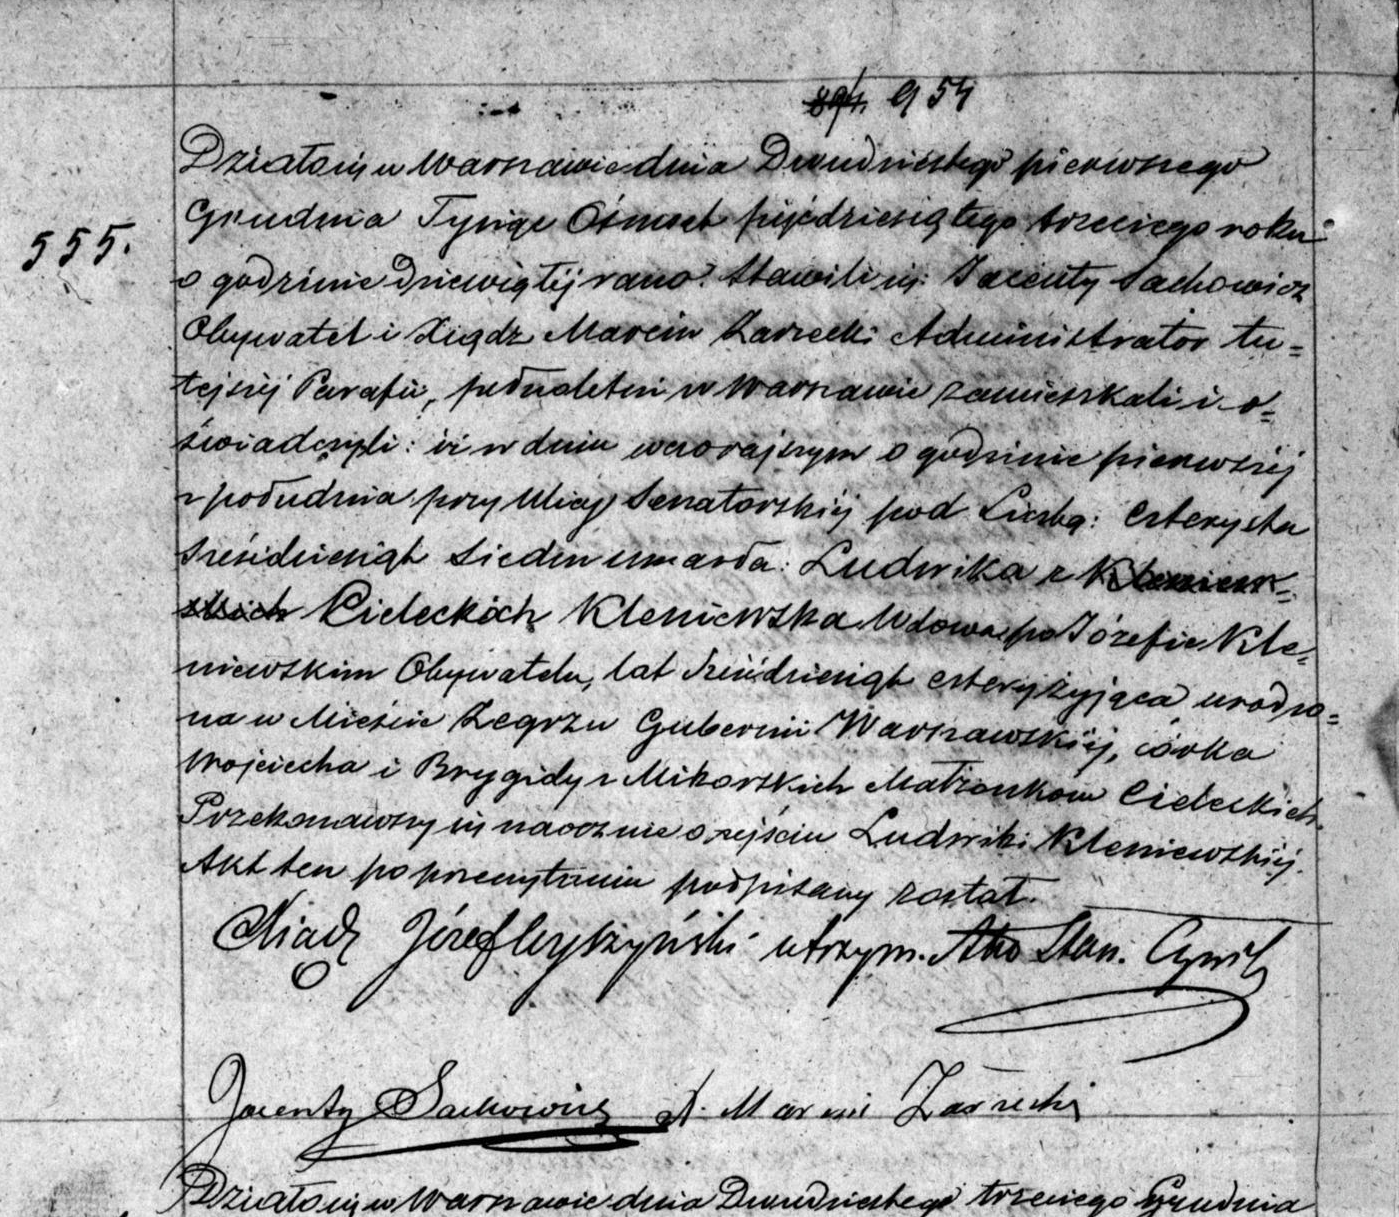 894. 954
555.
Działo się w Warszawie dnia Dwudziestego pierwszego
Grudnia Tysiąc Ośmset pięćdziesiątego trzeciego roku
o godzinie Dziewiątej rano. Stawili się: Jacenty Sachowicz
Obywatel i Xiądz Marcin Zarzecki Administrator tu=
tejszéj Parafii, pełnoletni w Warszawie zamieszkali i o=
świadczyli: iż w dniu wczorajszym o godzinie pierwszéj
z południa przy Ulicy Senatorskiéj pod Liczbą: czterysta
sześćdziesiąt siedm umarła: Ludwika z Kleniew=
skich Cieleckich Kleniewska Wdowa po Józefie Kle=
niewskim Obywatelu, lat sześćdziesiąt cztery żyjąca urodzo=
na w Mieście Zegrzu Gubernii Warszawskiéj, córka
Wojciecha i Brygidy z Mikorskich Małżonków Cieleckich.
Przekonawszy się naocznie o zejściu Ludwiki Kleniewskiéj.
Akt ten po przeczytaniu podpisany został.
Xiądz Józef utrzym. Akta Stan. Cywil
Jacenty Sachowicz X. Marcin Zarzecki
Działo się w Warszawie dnia Dwudziestego trzeciego Grudnia